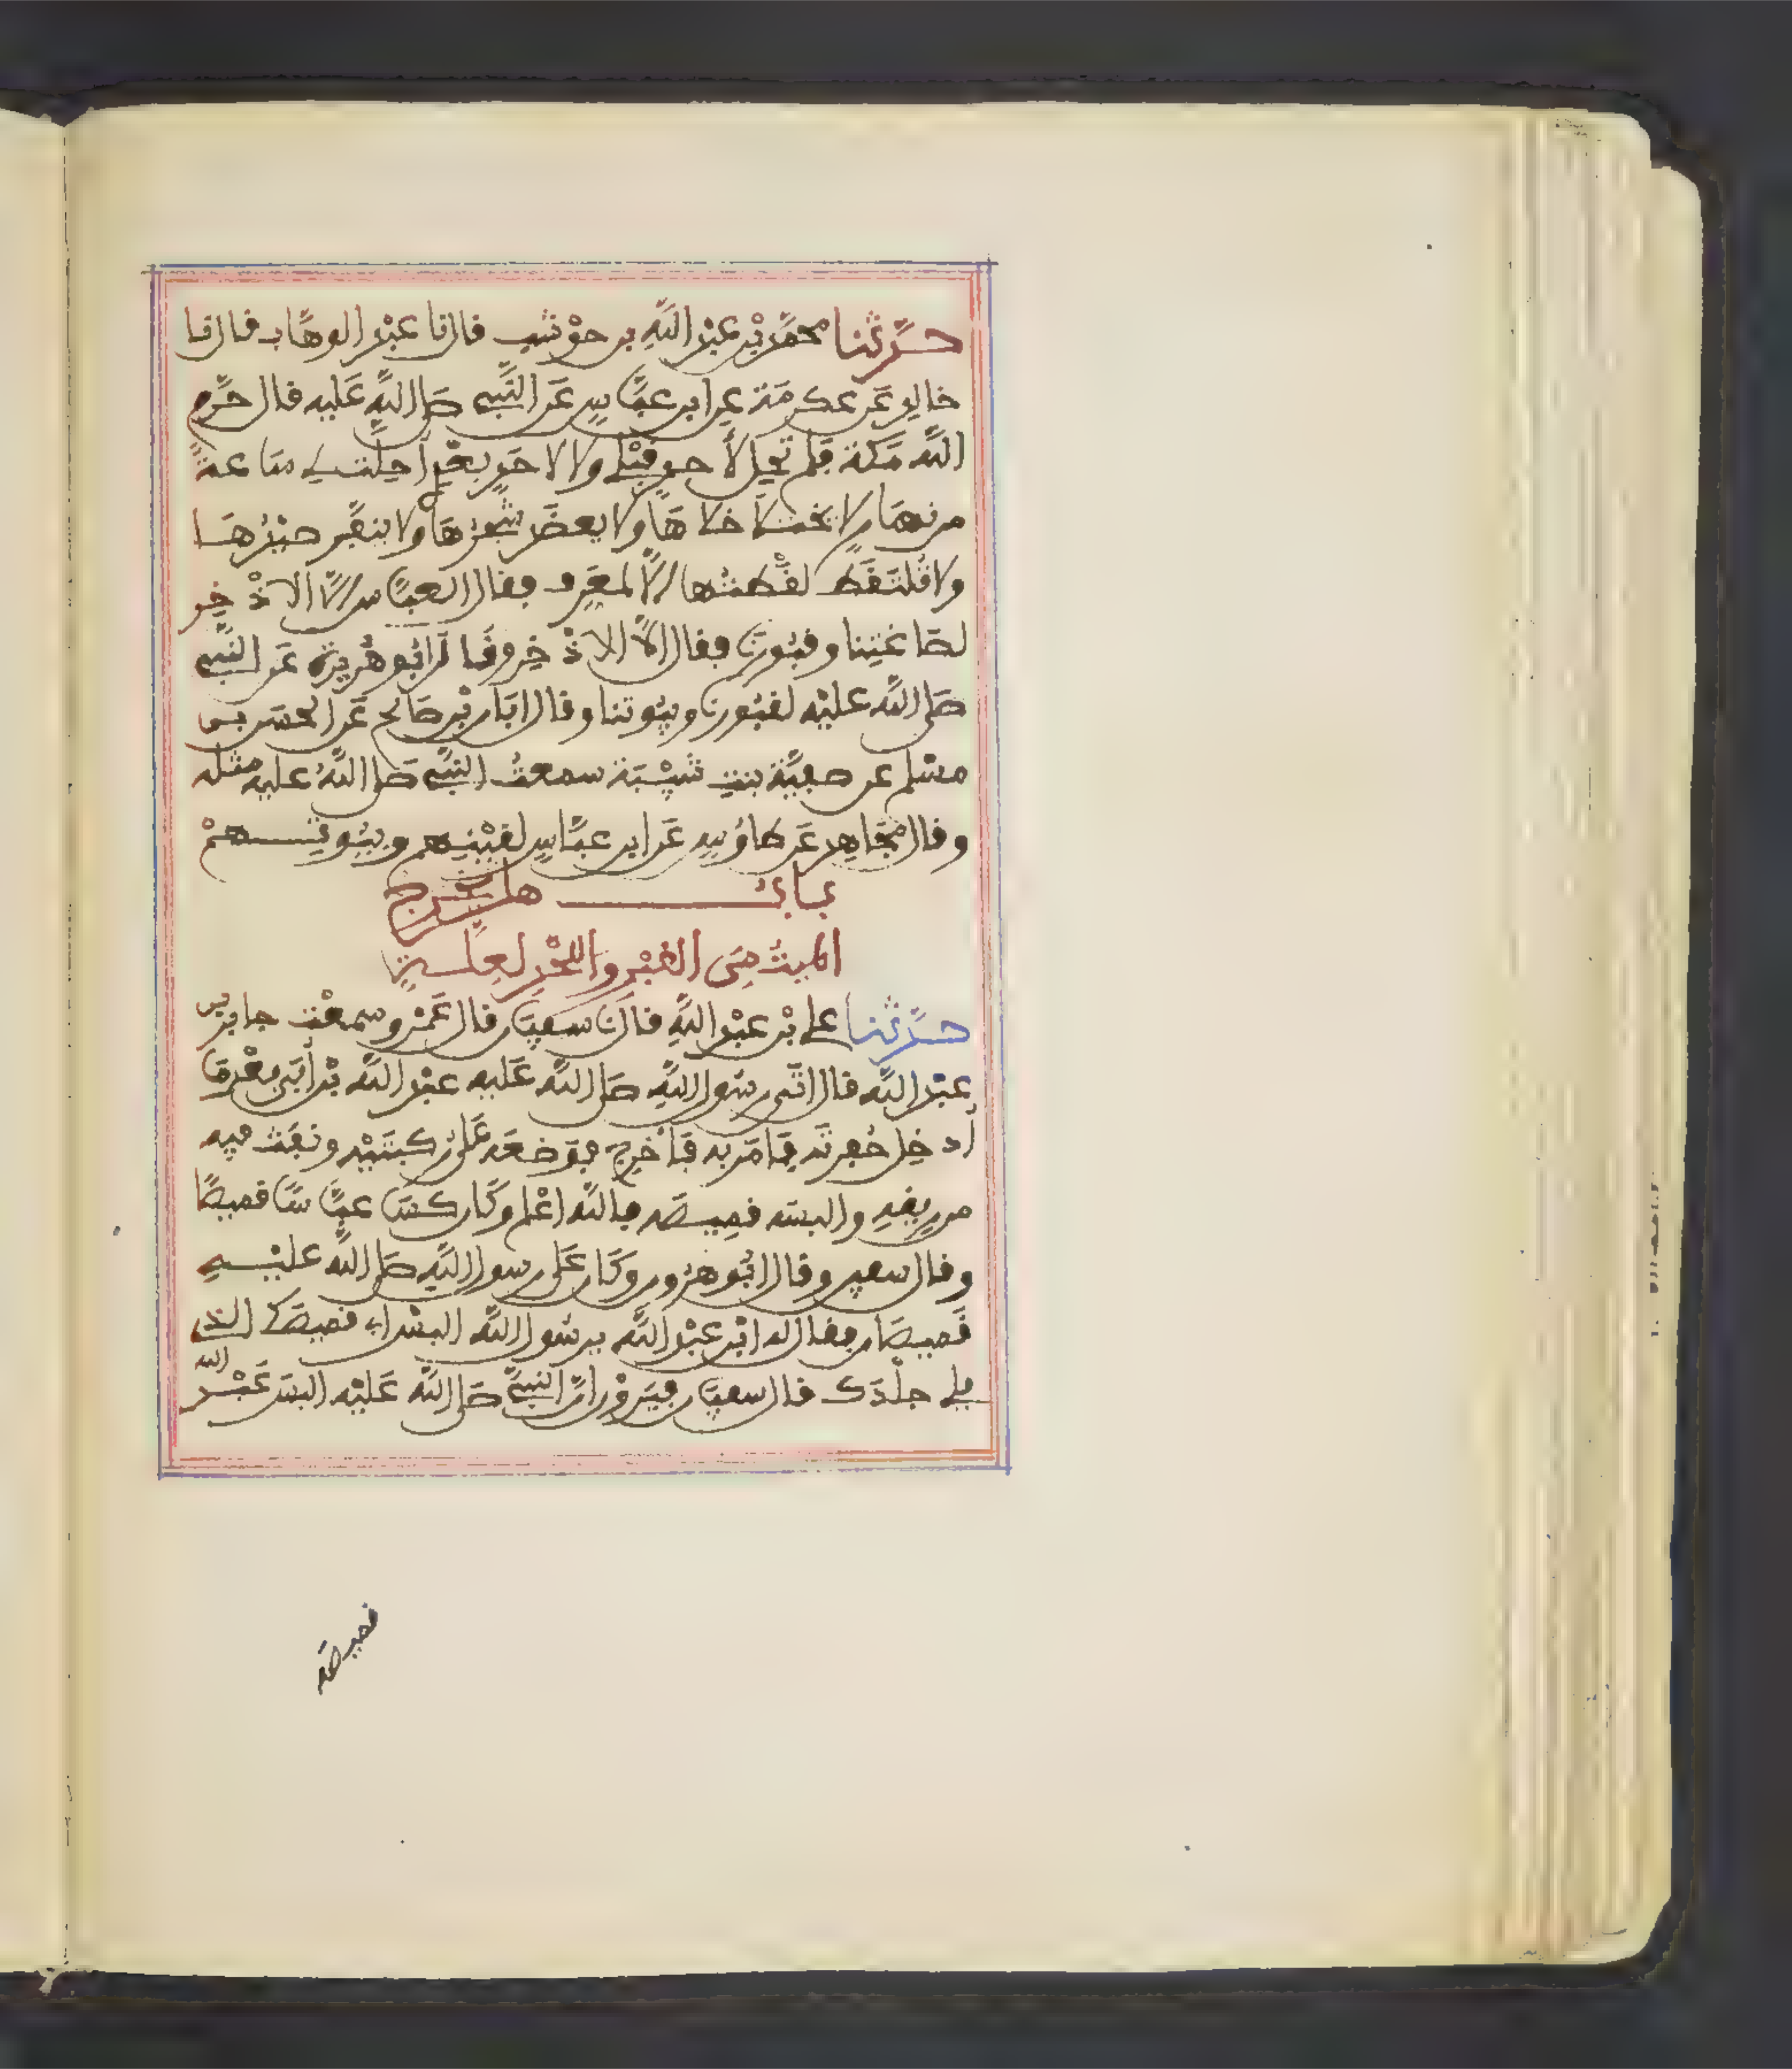 حدّثنا محمّد بْن عبْد اللّهِ بن حوْشب قال نا عبْد الوهّاب قال نا
خالد عَن عكرمَة عن ابن عبّاسٍ عَن النّبي صلى اللّه عَليه قال حَرّم
اللّه مَكة فلم تحِل لأحدٍ قبْلي ولا لاحَدٍ بعْدِي أحِلت لي سَاعةً
من نهَار لا يختلا خلاهَا ولا يعضَد شجرُهَا ولا ينفّر صيْدُهَا
ولا تُلتَقَط لقْطتُها إلاّ لمعَرِف فقال العبّاس إلاّ الاذْخِر
لصَاغتِنا وقبُورنَا فقال الاّ الاذْخِر وقَال أبُو هُريرة عَن النّبي
صَلى اللّه عليْه لقبُورنا وبيُوتنا وقال ابَان بْن صَالح عَن الحسَن بن
مسْلم عن صفيّة بنتِ شيْبَة سمعتُ النبّي صَلى اللّهُ عليه مثله
وقال مجَاهِد عَن طاوُسٍ عَن ابن عبّاسٍ لقيْنِهم وبيُوتِهمْ
بابُ هل يخْرج
الميتُ مِنَ القبْرِ واللّحْدِ لعِلةٍ
حدّثنا علي بْن عبْد اللّهِ قال نَا سفيَان قال عَمْرو سمعْت جابر بن
عبْد اللّه قال اتَى رسُول اللّهِ صَلى اللّه عَليه عبْد اللّه بْن أبَي بعْد مَا
أدخِل حُفرتَه فأمَر به فأخْرِج فوَضعَه عَلى رُكبتَيْه ونفَث فيه
من رِيقهِ والبسَه قمِيصَه فاللّه اعْلم وكَان كسَا عبّاسًا قميصًا
وقال سفين وقال ابُو هرُون وكَان عَلى رسول اللّهِ صَلى اللّه عليْهِ
قَميصَان فقال له ابْن عبْد اللّه يرسُول اللّه البسْ ابي قميصَك الذي
يلي جلْدَك قال سفيَان فيَروْن انّ النبيّ صَلى اللّه عَليْه البسَ عَبْد اللّه
قميصَه